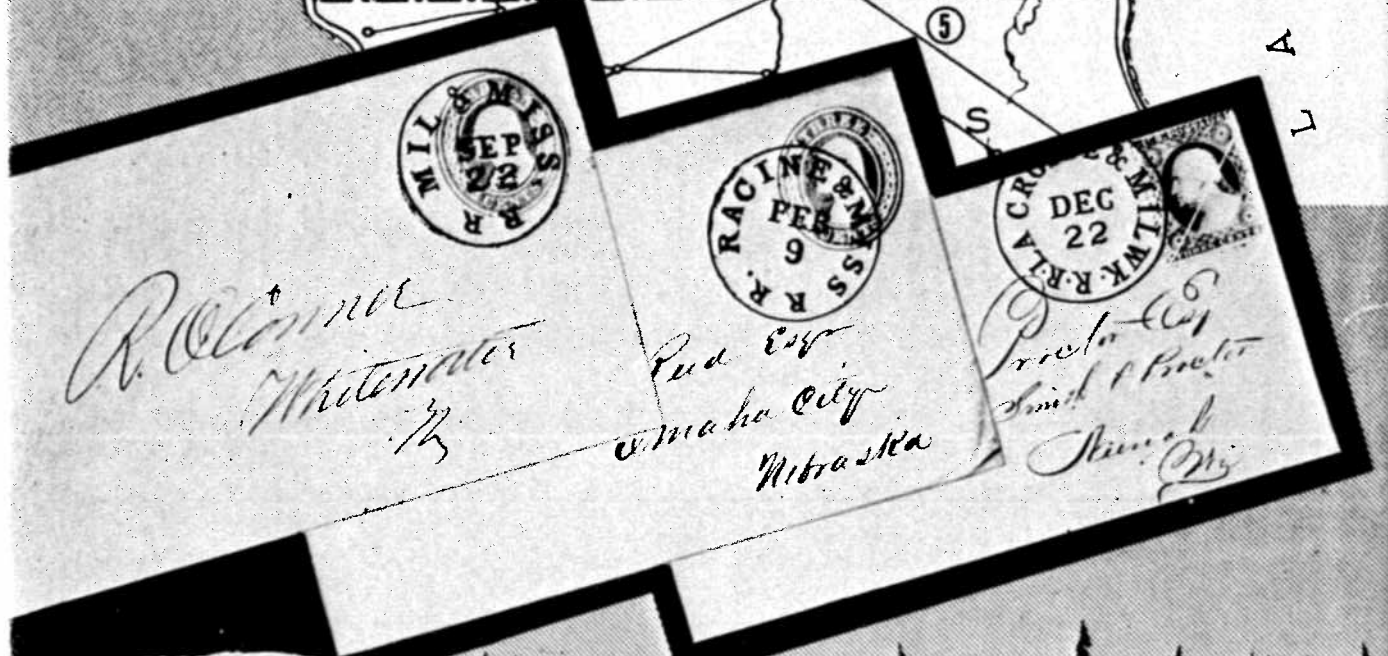 5
S
L A
MIL & MISS R R
SEP
22
R. O'Connor
Whitewater
RACINE & MISS R R.
FEB
9
Esqr
Omaha City
Nebraska
LA CROSSE & MILWK. R. R.
DEC
22
Proctor Esq
& Proctor